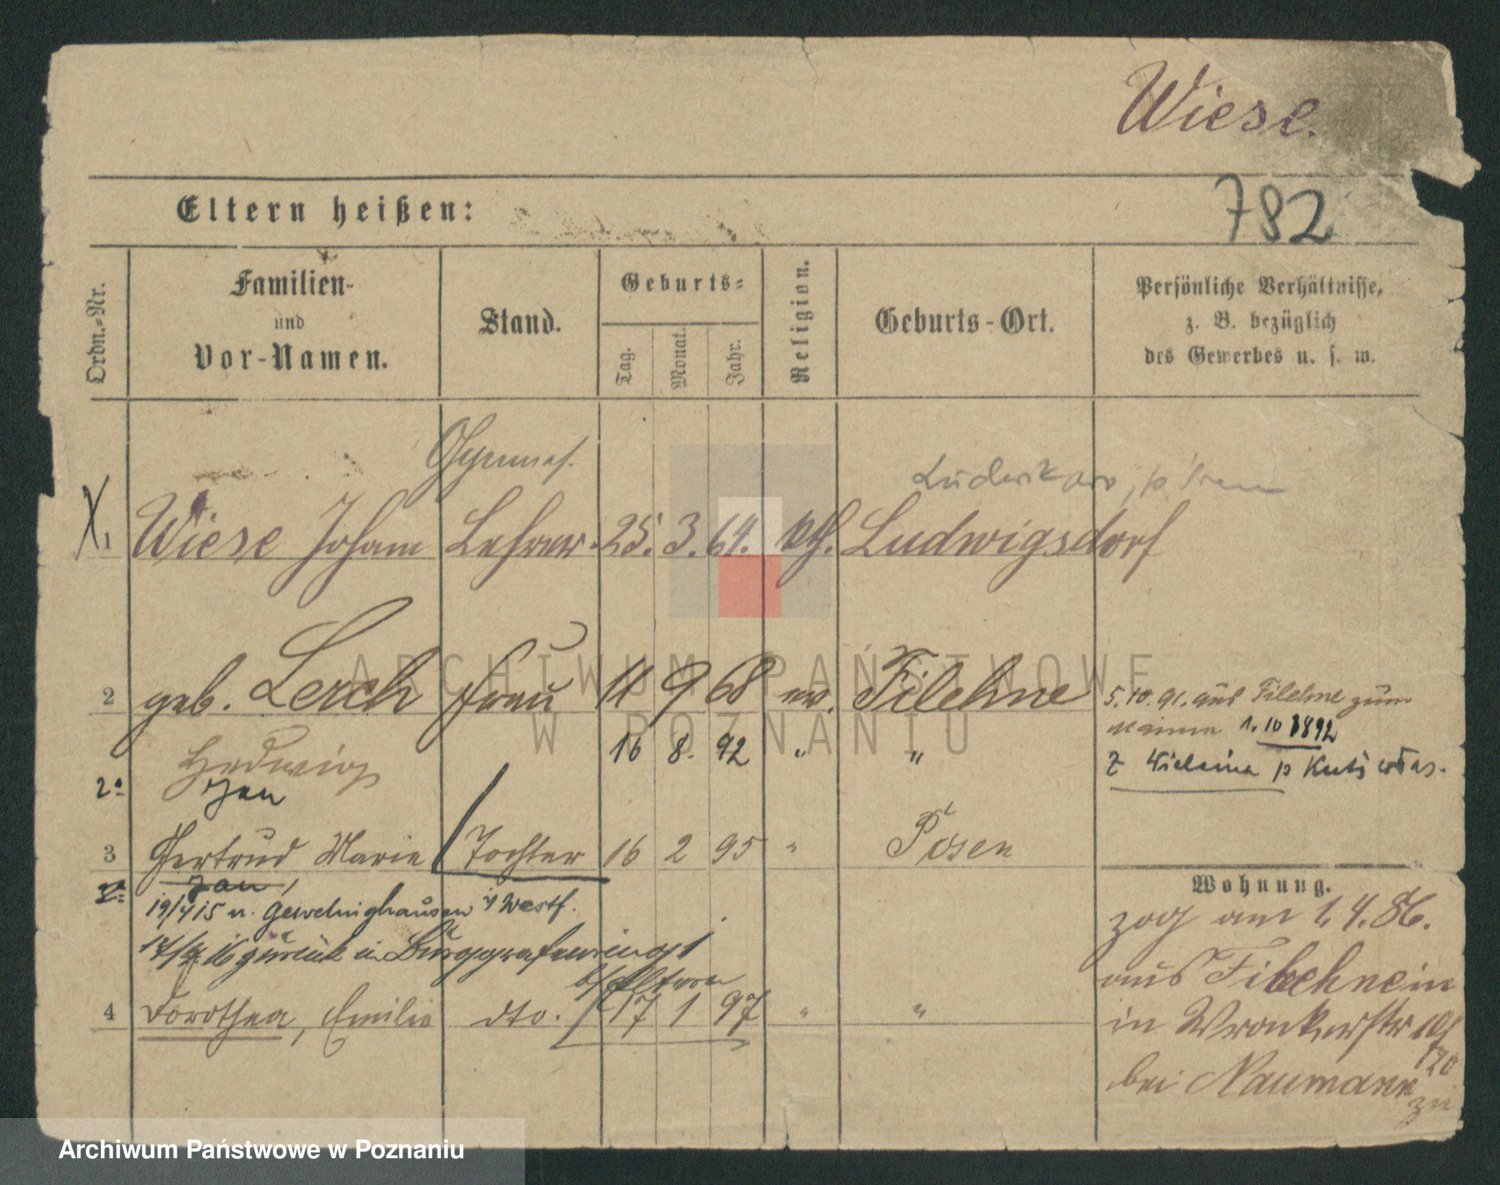 Wiese.
782
Eltern heißen:
Ordn.-Nr.
Familien-
und
Vor-Namen.
Stand.
Geburts-
Tag.
Monat.
Jahr.
Religion.
Geburts-Ort.
Persönliche Verhältnisse,
z. B. bezüglich
des Gewerbes u. s. w.
Gymnas.
1 Wiese Johann Lehrer. 25. 3. 64. kth. Ludwigsdorf
2 geb. Lerch Frau 11 9 68 ev. Filehne
5.10.91. aus Filehne zum
1. 10 1892
Hedwig 16 8. 92 " "
2a
3 Gertrud Marie Tochter 16 2 95 " Posen
19/4 15 n. Gevelinghausen i/ Westf.
zurück in Burggrafenring 1
b/ Eltern
4 Dorothea, Emilie dto. 17 1 97 " "
Wohnung.
zog am 1.4.86.
aus Filehne in
in Wronkerstr 10/
bei Naumann
zu
ARCHIWUM PAŃSTWOWE
W POZNANIU
Archiwum Państwowe w Poznaniu